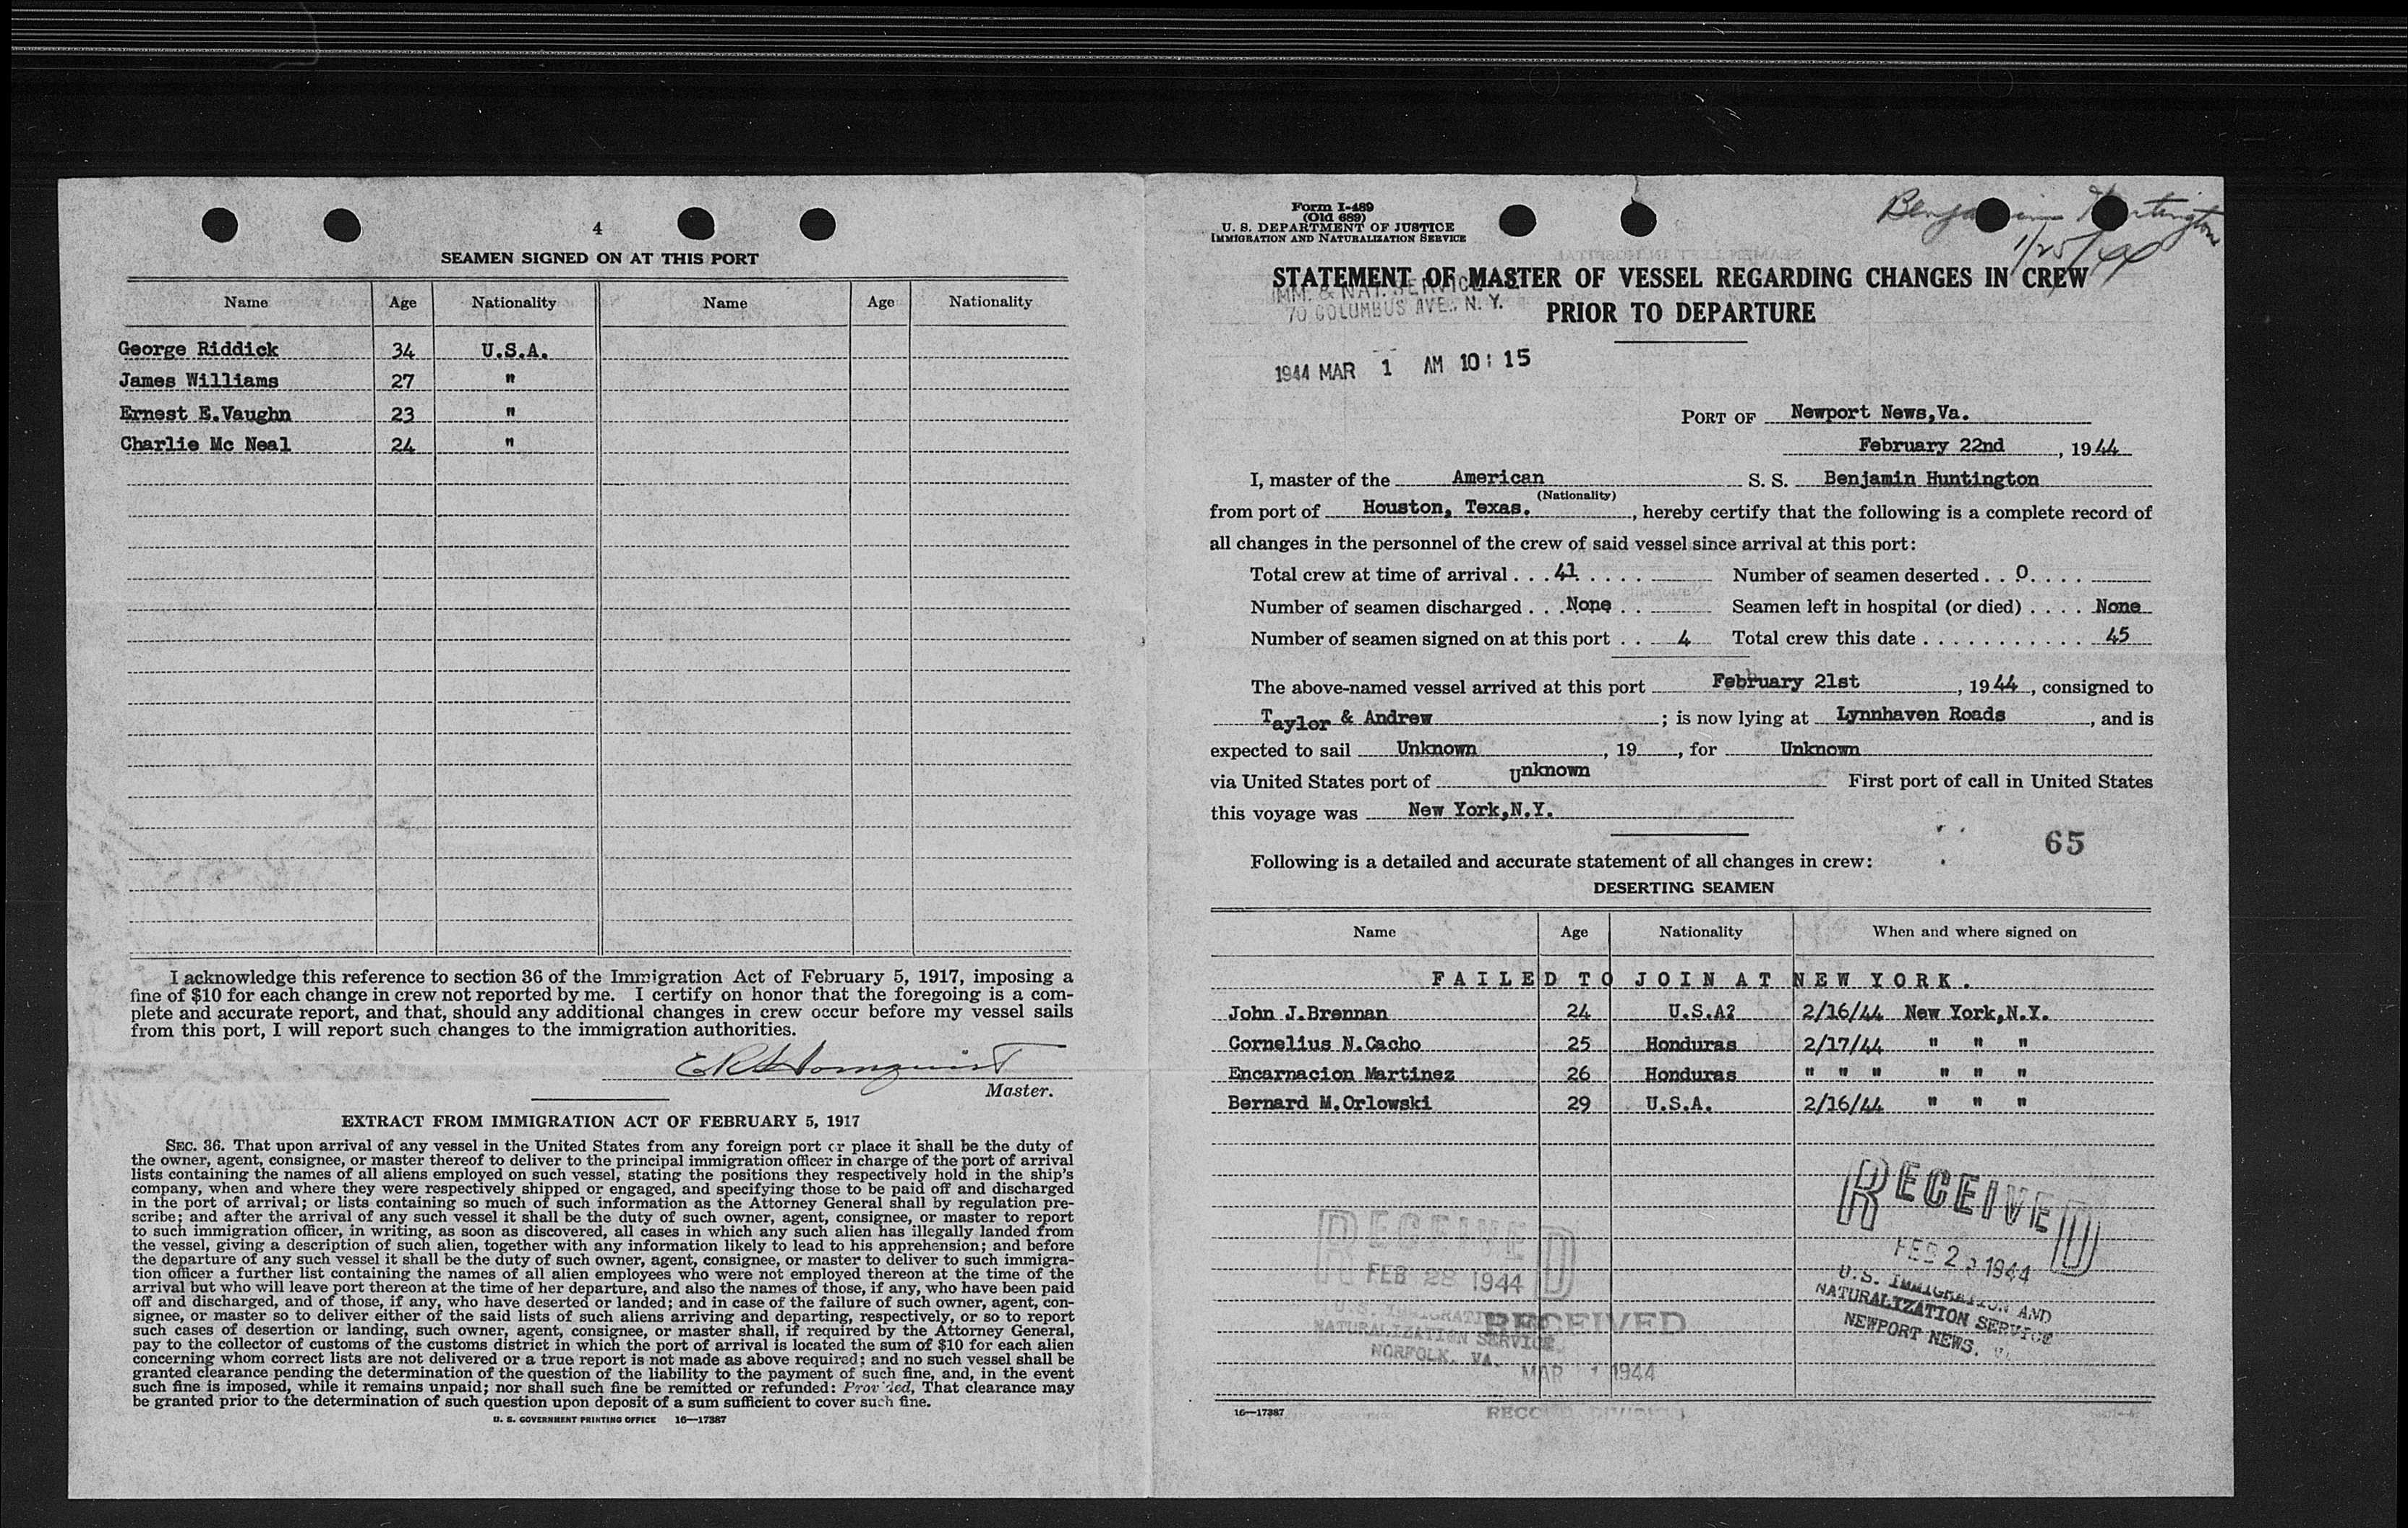 4
SEAMEN SIGNED ON AT THIS PORT
Name Age Nationality Name Age Nationality
George Riddick 34 U.S.A.
James Williams 27 "
Ernest E.Vaughn 23 "
Charlie Mc Neal 24 "
I acknowledge this reference to section 36 of the Immigration Act of February 5, 1917, imposing a
fine of $10 for each change in crew not reported by me. I certify on honor that the foregoing is a com-
plete and accurate report, and that, should any additional changes in crew occur before my vessel sails
from this port, I will report such changes to the immigration authorities.
Master.
EXTRACT FROM IMMIGRATION ACT OF FEBRUARY 5, 1917
SEC. 36. That upon arrival of any vessel in the United States from any foreign port or place it shall be the duty of
the owner, agent, consignee, or master thereof to deliver to the principal immigration officer in charge of the port of arrival
lists containing the names of all aliens employed on such vessel, stating the positions they respectively hold in the ship's
company, when and where they were respectively shipped or engaged, and specifying those to be paid off and discharged
in the port of arrival; or lists containing so much of such information as the Attorney General shall by regulation pre-
scribe; and after the arrival of any such vessel it shall be the duty of such owner, agent, consignee, or master to report
to such immigration officer, in writing, as soon as discovered, all cases in which any such alien has illegally landed from
the vessel, giving a description of such alien, together with any information likely to lead to his apprehension; and before
the departure of any such vessel it shall be the duty of such owner, agent, consignee, or master to deliver to such immigra-
tion officer a further list containing the names of all alien employees who were not employed thereon at the time of the
arrival but who will leave port thereon at the time of her departure, and also the names of those, if any, who have been paid
off and discharged, and of those, if any, who have deserted or landed; and in case of the failure of such owner, agent, con-
signee, or master so to deliver either of the said lists of such aliens arriving and departing, respectively, or so to report
such cases of desertion or landing, such owner, agent, consignee, or master shall, if required by the Attorney General,
pay to the collector of customs of the customs district in which the port of arrival is located the sum of $10 for each alien
concerning whom correct lists are not delivered or a true report is not made as above required; and no such vessel shall be
granted clearance pending the determination of the question of the liability to the payment of such fine, and, in the event
such fine is imposed, while it remains unpaid; nor shall such fine be remitted or refunded: Provided, That clearance may
be granted prior to the determination of such question upon deposit of a sum sufficient to cover such fine.
U. S. GOVERNMENT PRINTING OFFICE 16—17387
Form I-489
(Old 689)
U. S. DEPARTMENT OF JUSTICE
IMMIGRATION AND NATURALIZATION SERVICE
Benjamin Huntington
1/25/44
STATEMENT OF MASTER OF VESSEL REGARDING CHANGES IN CREW
PRIOR TO DEPARTURE
IMM. & NAT. SERVICE
70 COLUMBUS AVE., N. Y.
1944 MAR 1 AM 10:15
PORT OF Newport News,Va.
February 22nd, 1944
I, master of the American S. S. Benjamin Huntington
(Nationality)
from port of Houston, Texas., hereby certify that the following is a complete record of
all changes in the personnel of the crew of said vessel since arrival at this port:
Total crew at time of arrival . . . 41 . . . . Number of seamen deserted . . 0 . . . .
Number of seamen discharged . . . None . . Seamen left in hospital (or died) . . . . None
Number of seamen signed on at this port . . 4 Total crew this date . . . . . . . . . . . . 45
The above-named vessel arrived at this port February 21st, 1944, consigned to
Taylor & Andrew; is now lying at Lynnhaven Roads, and is
expected to sail Unknown, 19, for Unknown
via United States port of Unknown First port of call in United States
this voyage was New York,N.Y.
65
Following is a detailed and accurate statement of all changes in crew:
DESERTING SEAMEN
Name Age Nationality When and where signed on
FAILED TO JOIN AT NEW YORK.
John J.Brennan 24 U.S.A? 2/16/44 New York,N.Y.
Cornelius N.Cacho 25 Honduras 2/17/44 " " "
Encarnacion Martinez 26 Honduras " " " " " "
Bernard M.Orlowski 29 U.S.A. 2/16/44 " " "
RECEIVED
FEB 2 1944
U.S. IMMIGRATION AND
NATURALIZATION SERVICE
NEWPORT NEWS.
RECEIVED
FEB 28 1944
U.S. IMMIGRATION
NATURALIZATION SERVICE
NORFOLK, VA.
RECEIVED
MAR 1 1944
16—17387